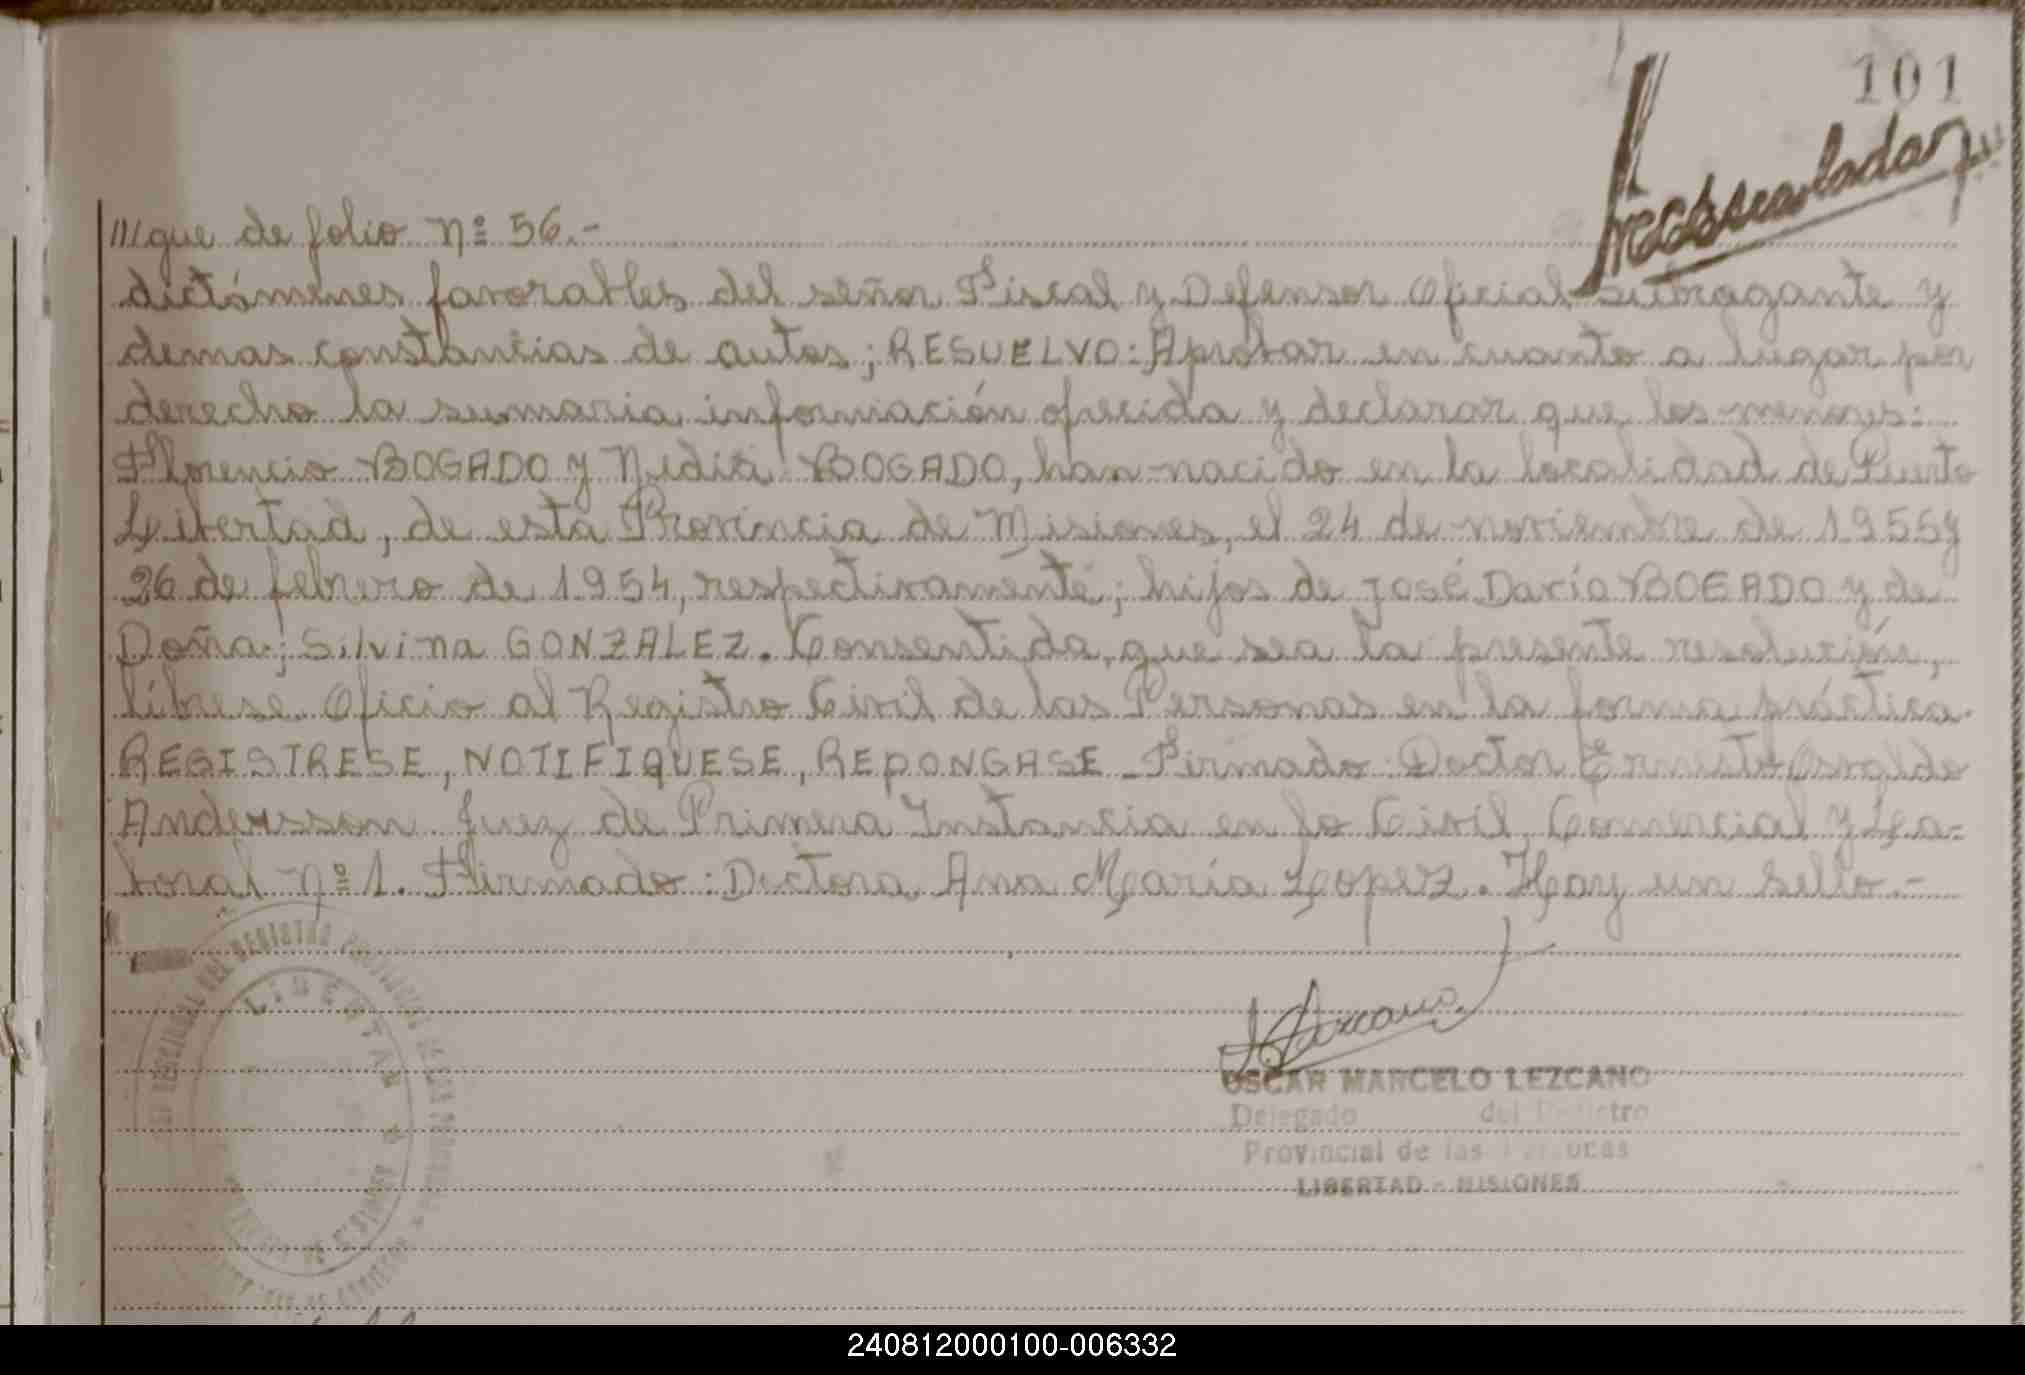 101
///gue de folio nº 56.-
dictámenes favorables del señor Fiscal y Defensor Oficial subrogante y
demas constancias de autos; RESUELVO: Aprobar en cuanto a lugar por
derecho la sumaria información ofrecida y declarar que los menores:
Florencio BOGADO y Nidia BOGADO, han nacido en la localidad de Puerto
Libertad, de esta Provincia de Misiones, el 24 de noviembre de 1955 y
26 de febrero de 1954, respectivamente; hijos de José Darío BOGADO y de
Doña; Silvina GONZALEZ. Consentida, que sea la presente resolución,
líbrese Oficio al Registro Civil de las Personas en la forma práctica.
REGISTRESE, NOTIFIQUESE, REPONGASE - Firmado Doctor Ernesto Osvaldo
Andersson Juez de Primera Instancia en lo Civil, Comercial y La-
boral nº 1. Firmado: Doctora Ana María Lopez. Hay un sello.-
LIBERTAD
Lezcano
OSCAR MARCELO LEZCANO
Delegado del Registro
Provincial de las Personas
LIBERTAD - MISIONES
240812000100-006332